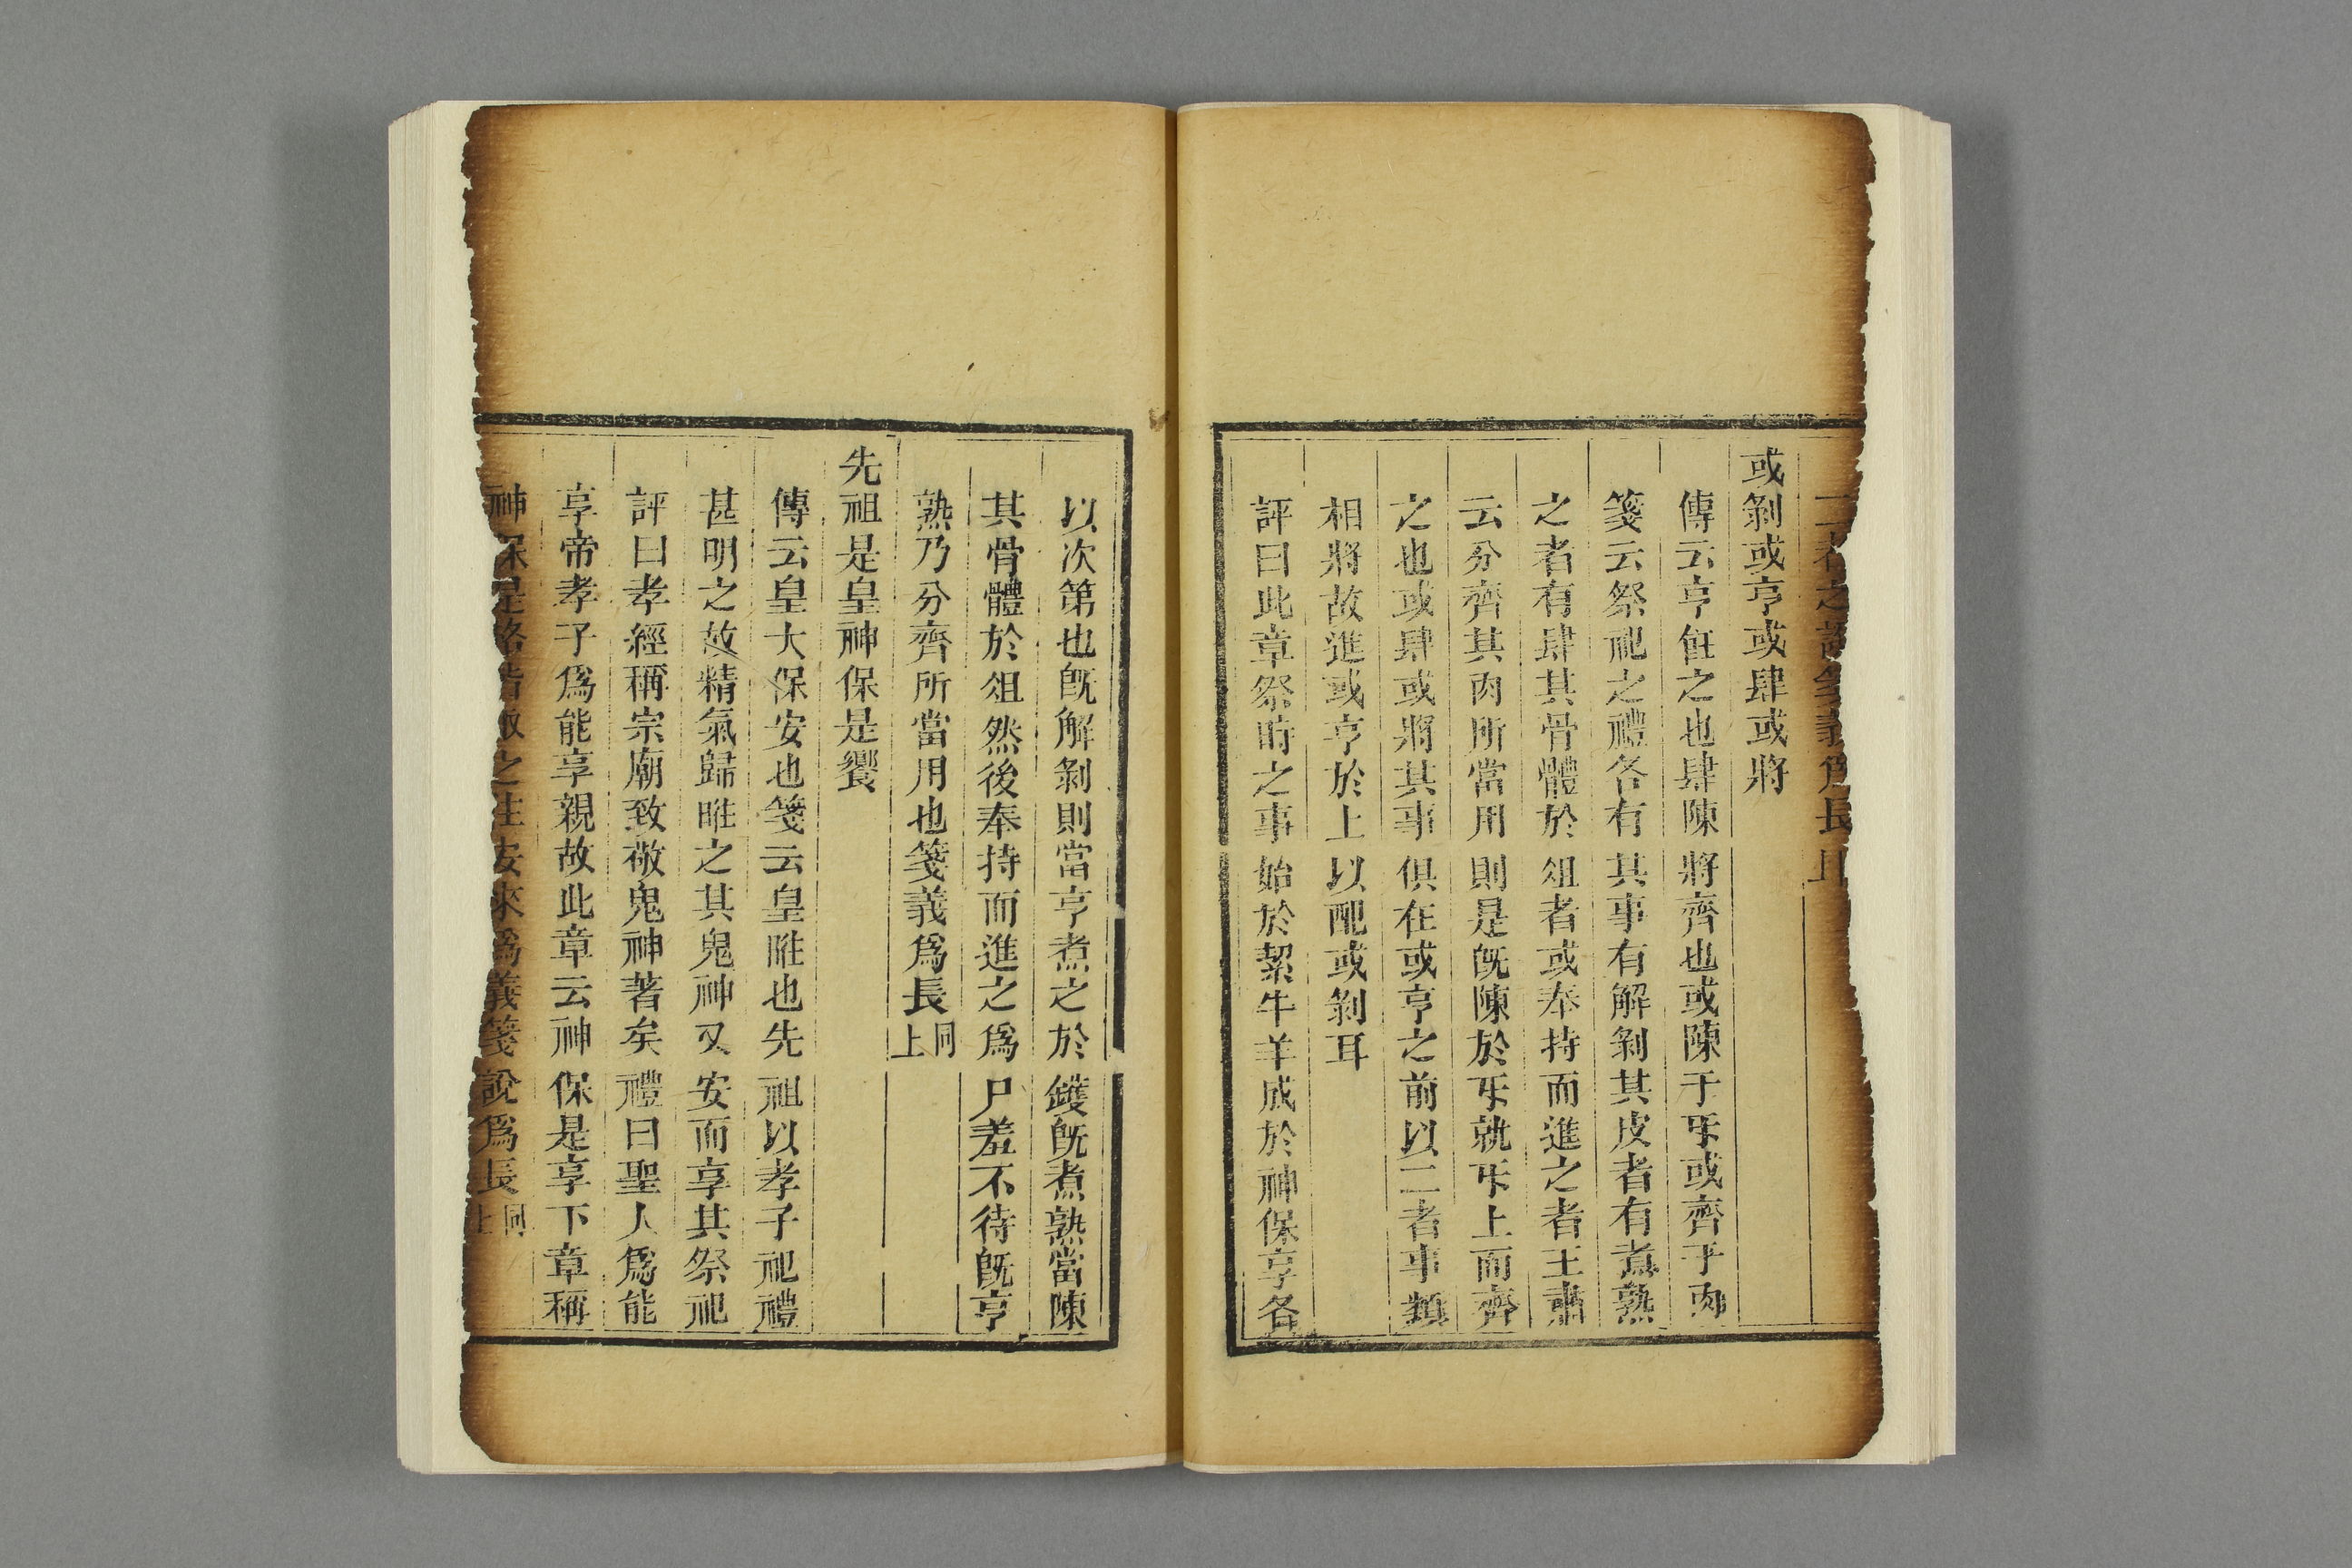 二者之說箋義爲長
或剝或亨或肆或將
傳云亨飪之也肆陳將齊也或陳于互或齊于肉
箋云祭祀之禮各有其事有解剝其皮者有煮熟
之者有肆其骨體於俎者或奉持而進之者王肅
云分齊其肉所當用則是旣陳於互就互上而齊
之也或肆或將其事俱在或亨之前以二者事類
相將故進或亨於上以配或剝耳
評曰此章祭時之事始於絜牛羊成於神保享各
以次第也旣解剝則當亨煮之於鑊旣煮熟當陳
其骨體於俎然後奉持而進之爲尸羞不待旣亨
熟乃分齊所當用也箋義爲長同上
先祖是皇神保是饗
傳云皇大保安也箋云皇暀也先祖以孝子祀禮
甚明之故精氣歸暀之其鬼神又安而享其祭祀
評曰孝經稱宗廟致敬鬼神著矣禮曰聖人爲能
享帝孝子爲能享親故此章云神保是享下章稱
神保是格皆敬之往安來爲義箋說爲長同上